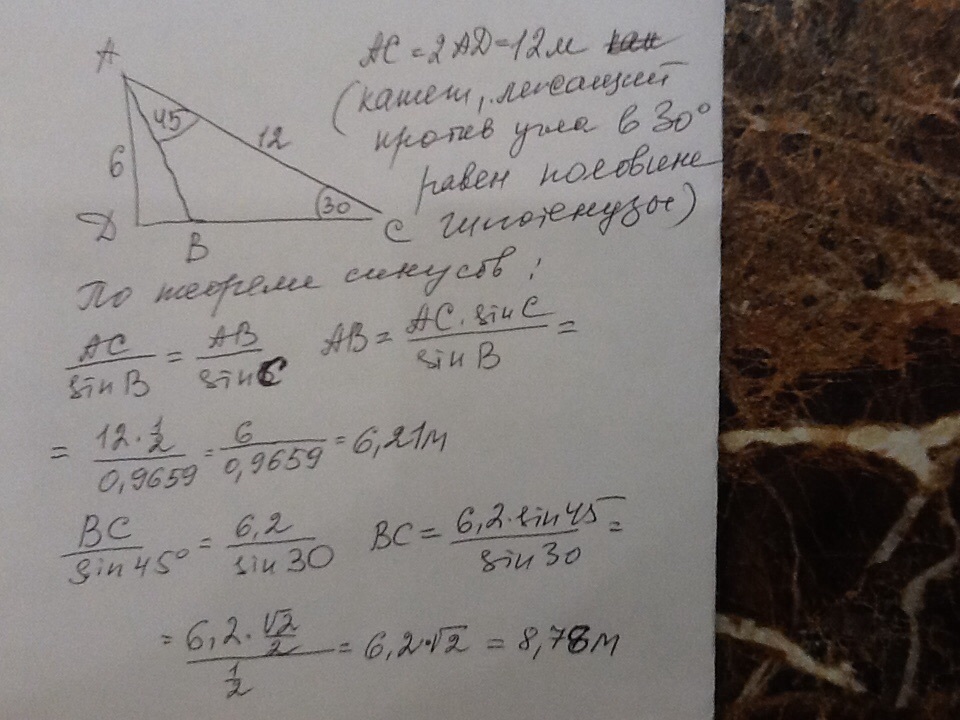 AC = 2AD = 12м
(катет, лежащий
против угла в 30°
равен половине
гипотенузы)
A
45
12
6
30
D
B
C
По теореме синусов :
AC/sin B = AB/sin C AB = AC · sin C/sin B =
= 12 · 1/2/0,9659 = 6/0,9659 = 6,21м
BC/sin 45° = 6,2/sin 30 BC = 6,2 · sin 45/sin 30 =
= 6,2 · √2/2/1/2 = 6,2 · √2 = 8,78м